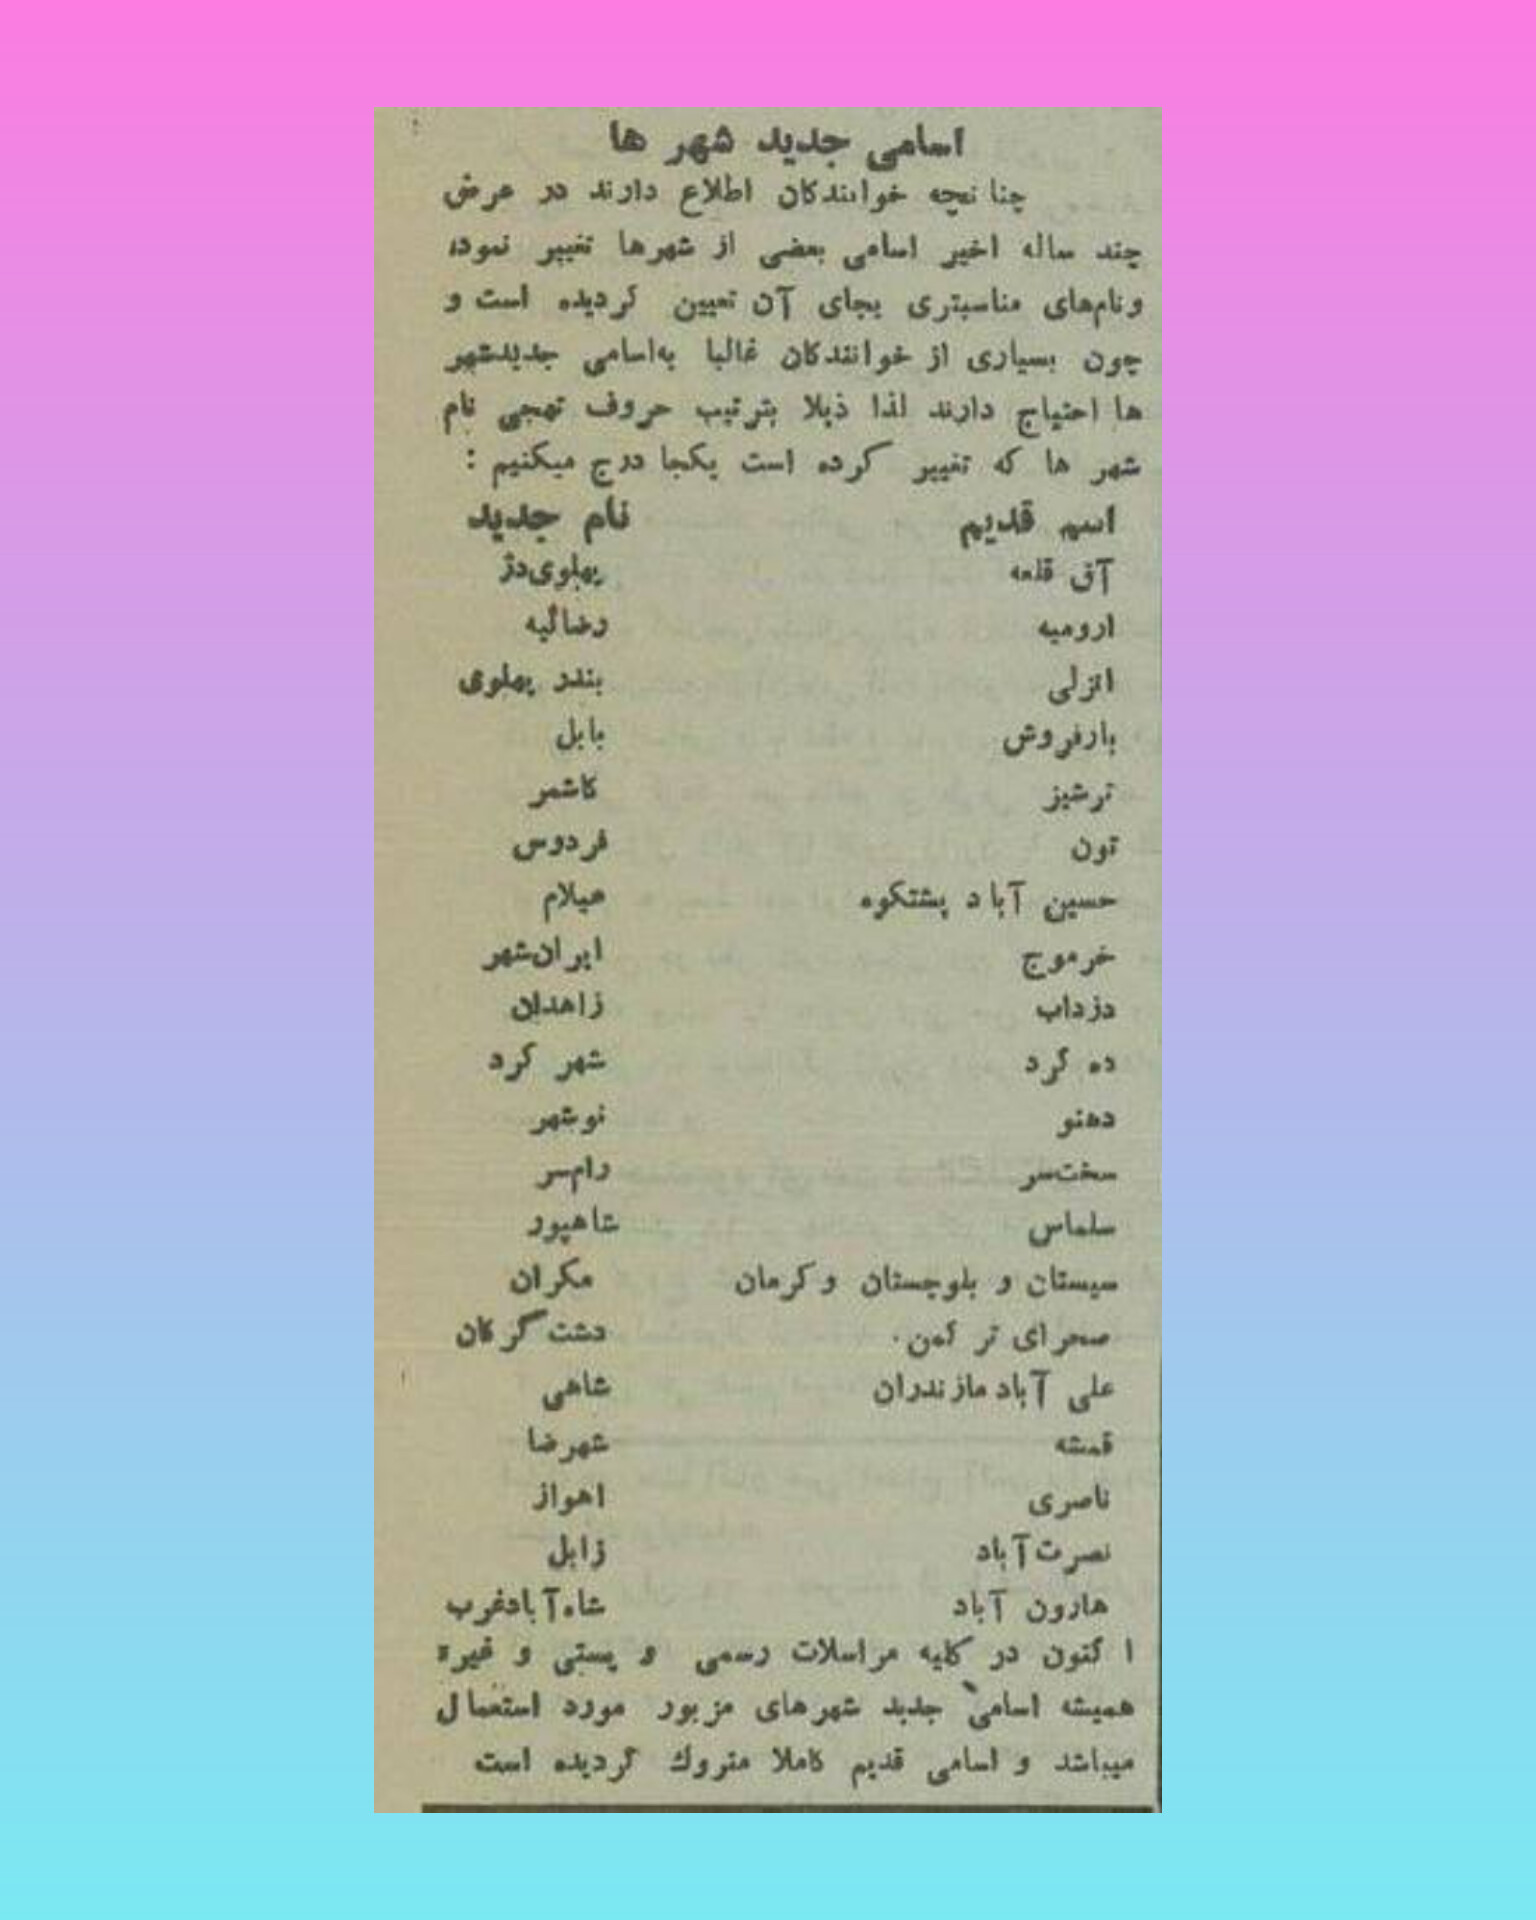 اسامی جدید شهر ها
چنانچه خوانندکان اطلاع دارند در عرض
چند ساله اخیر اسامی بعضی از شهرها تغییر نموده
ونام‌های مناسبتری بجای آن تعیین گردیده است و
چون بسیاری از خوانندکان غالبا به‌اسامی جدیدشهر
ها احتیاج دارند لذا ذیلا بترتیب حروف تهجی نام
شهر ها که تغییر کرده است یکجا درج میکنیم :
اسم قدیم نام جدید
آق قلعه پهلوی‌دژ
ارومیه رضائیه
انزلی بندر پهلوی
بارفروش بابل
ترشیز کاشمر
تون فردوس
حسین آباد پشتکوه عیلام
خرموج ایران‌شهر
دزداب زاهدان
ده کرد شهر کرد
دهنو نوشهر
سخت‌سر رام‌سر
سلماس شاهپور
سیستان و بلوچستان وکرمان مکران
صحرای تر کمن. دشت گرکان
علی آباد مازندران شاهی
قمشه شهرضا
ناصری اهواز
نصرت‌آباد زابل
هارون آباد شاه‌آبادغرب
اکنون در کلیه مراسلات رسمی و پستی و غیره
همیشه اسامی جدید شهرهای مزبور مورد استعمال
میباشد و اسامی قدیم کاملا متروك گردیده است